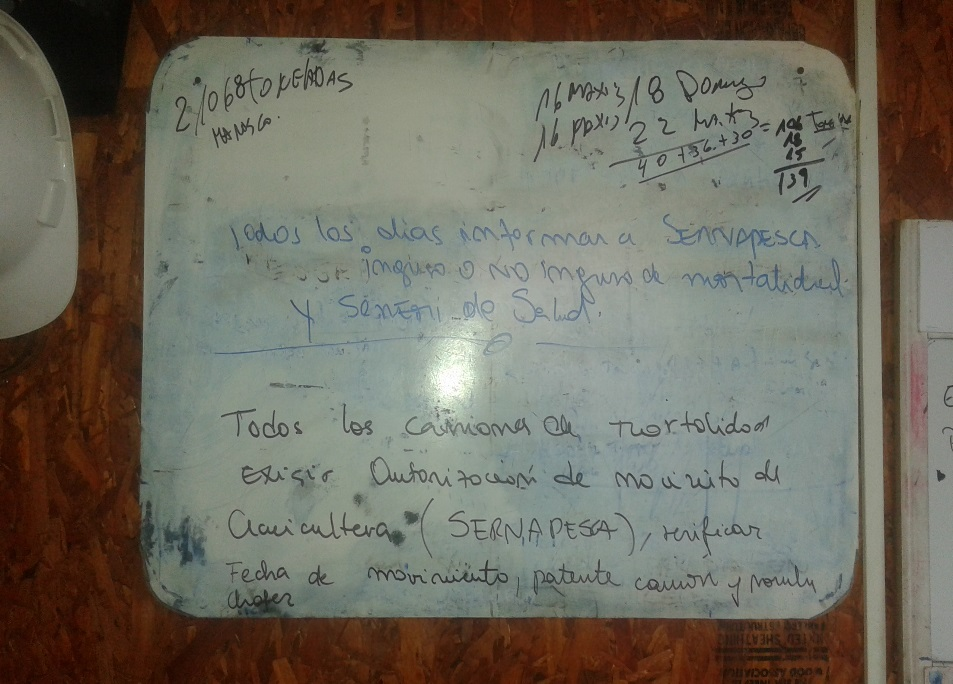 21068 TONELADAS
16 MAXIS 18 Domingo
16
22 MAXIS
40 + 36 + 30 = 106
18
15
139
Todos los dias informar a SERNAPESCA
ingreso o NO ingreso de mortalidad
Y Seremi de Salud.
Todos los camiones de mortalidad
EXIGIR Autorización de movimiento de
Acuicultera (SERNAPESCA), verificar
Fecha de movimiento, patente camion y nombre
chofer